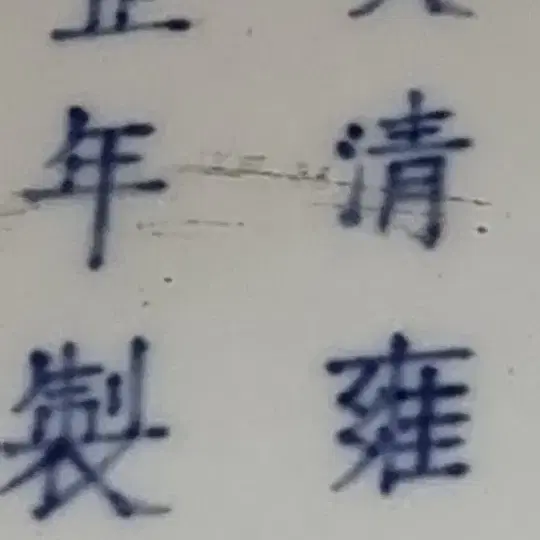 大清雍
正年製